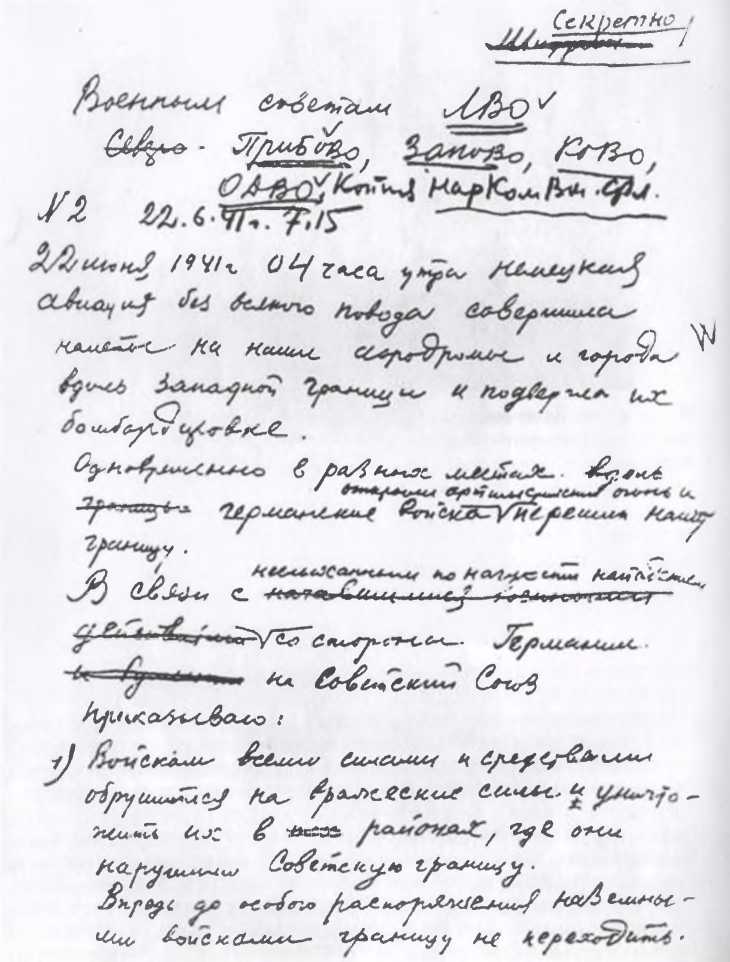 Секретно
Шифром
Военным советам ЛВО
Северо- Прибово, Запово, КОВО,
ОДВО, Копия НарКом Вм. Фл.
N 2 22.6.41г. 7.15
22 июня 1941г 04 часа утра немецкая
авиация без всякого повода совершила
налеты на наши аэродромы и города
вдоль западной границы и подвергла их
бомбардировке.
Одновременно в разных местах вдоль
открыли артиллерийский огонь и
границы германские войска перешли нашу
границу.
неслыханным по наглости нападением
В связи с начавшимися военными
действиями со стороны Германии
на Советский Союз
Приказываю:
1) Войскам всеми силами и средствами
обрушиться на вражеские силы и уничто-
жить их в районах, где они
нарушили Советскую границу.
Впредь до особого распоряжения наземны-
ми войсками границу не переходить.